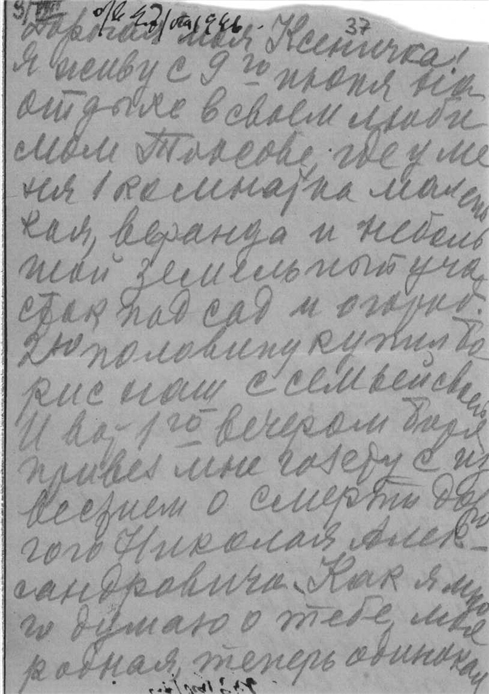 3/VIII 1946. 37
Дорогая моя Ксеничка!
Я живу с 9го июня на
отдыхе в своем люби
мом Токсове, где у ме
ня 1 комнатка малень
кая, веранда и неболь
шой земельный уча
сток под сад и огород.
2ю половину купил Бо
рис наш с семьей своей
И вот 1го вечером Боря
привез мне газету с из
вестием о смерти до
рогого Николая Алек-
сандровича. Как я мно
го думаю о тебе, моя
родная, теперь одинокая